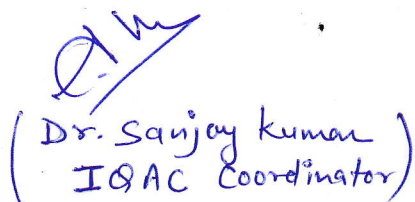 (Dr. Sanjay Kumar
IQAC Coordinator)